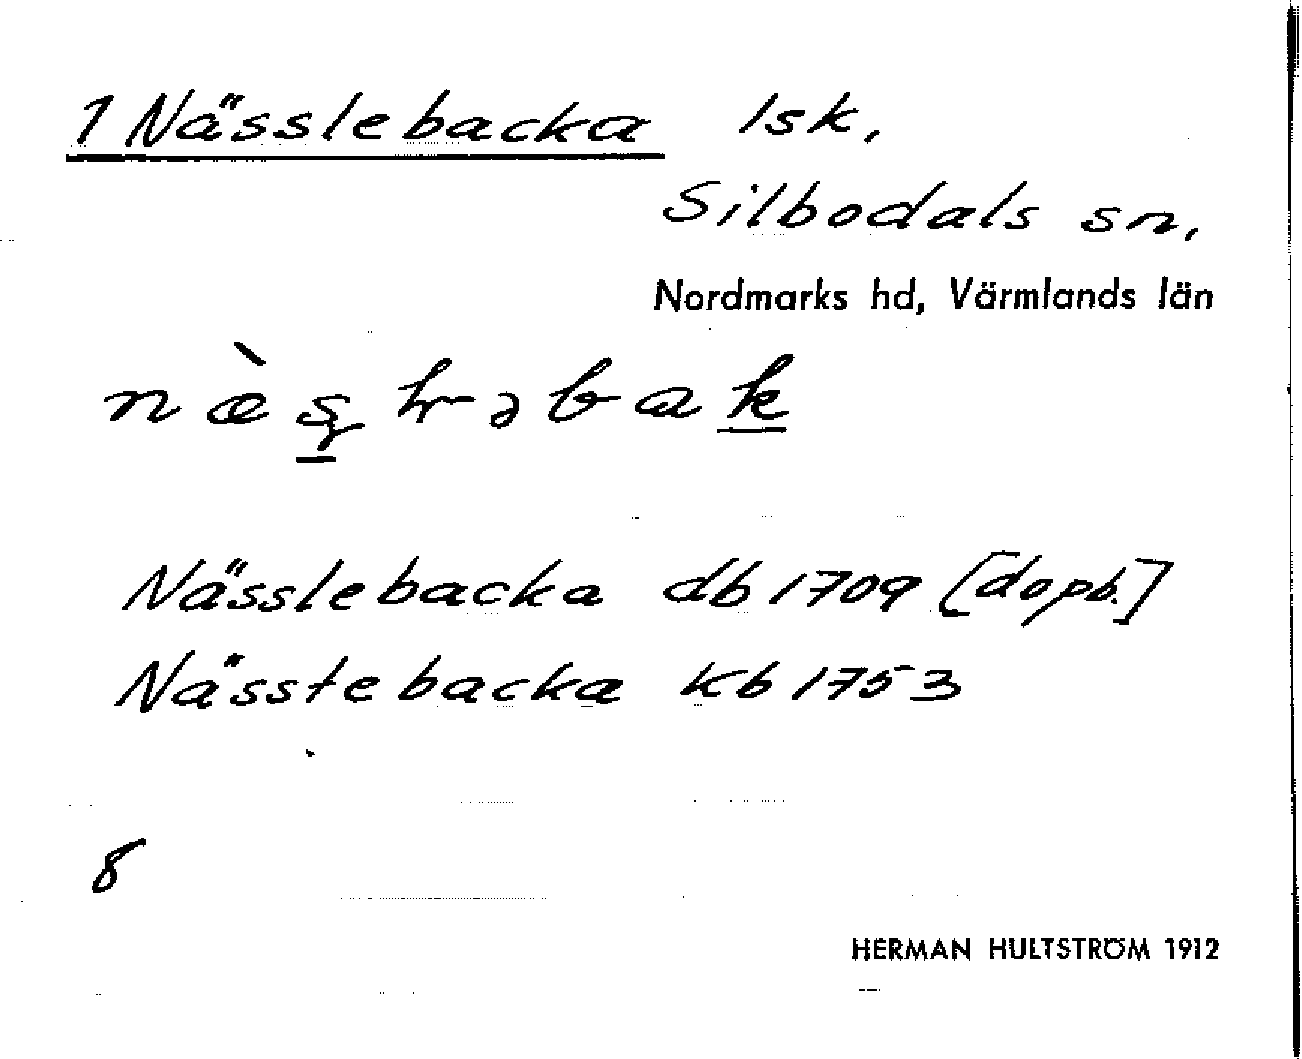 1 Nässlebacka lsk,
Silbodals sn,
Nordmarks hd, Värmlands län
Nässlebacka db 1709 [dopb.]
Nässtebacka kb 1753
8
HERMAN HULTSTRÖM 1912